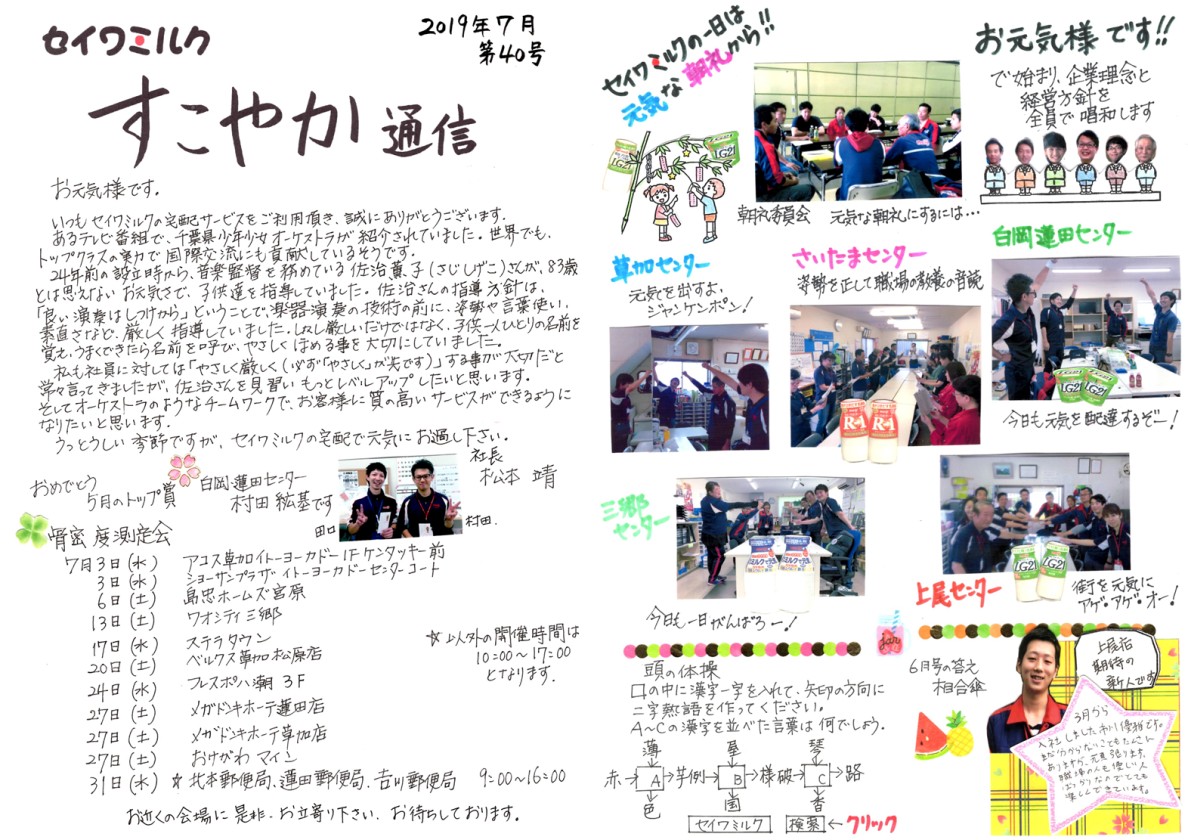 セイワミルク
2019年7月
第40号
すこやか通信
お元気様です。
いつもセイワミルクの宅配サービスをご利用頂き、誠にありがとうございます。
あるテレビ番組で、千葉県少年少女オーケストラが紹介されていました。世界でも、
トップクラスの実力で国際交流にも貢献しているそうです。
24年前の設立時から、音楽監督を務めている佐治薫子(さじしげこ)さんが、83歳
とは思えないお元気さで、子供達を指導していました。佐治さんの指導方針は、
「良い演奏はしつけから」ということで、楽器演奏の技術の前に、姿勢や言葉使い、
素直さなど、厳しく指導していました。しかし厳しいだけではなく、子供一人ひとりの名前を
覚え、うまくできたら名前を呼び、やさしくほめる事を大切にしていました。
私も社員に対しては「やさしく厳しく(必ず「やさしく」が先です)」する事が大切だと
常々言ってきましたが、佐治さんを見習いもっとレベルアップしたいと思います。
そしてオーケストラのようなチームワークで、お客様に質の高いサービスができるように
なりたいと思います。
うっとうしい季節ですが、セイワミルクの宅配で元気にお過し下さい。
社長
松本 靖
おめでとう
5月のトップ賞
白岡蓮田センター
村田紘基です
田口
村田.
骨密度測定会
7月3日(水) アコス草加イトーヨーカドー1Fケンタッキー前
3日(水) ショーサンプラザイトーヨーカドーセンターコート
6日(土) 島忠ホームズ宮原
13日(土) ワオシティ三郷
17日(水) ステラタウン
20日(土) ベルクス草加松原店
24日(水) フレスポ八潮 3F
27日(土) メガドキホーテ蓮田店
27日(土) メガドキホーテ草加店
27日(土) おけがわマイン
31日(水) ☆北本郵便局、蓮田郵便局、吉川郵便局 9:00~16:00
☆以外の開催時間は
10:00~17:00
となります。
お近くの会場に是非、お立寄り下さい、お待ちしております。
セイワミルクの一日は
元気な朝礼から!!
LG21
LG21
朝礼委員会 元気な朝礼にするには…
お元気様です!!
で始まり、企業理念と
経営方針を
全員で唱和します
草加センター
元気を出すよ、
ジャンケンポン!
さいたまセンター
姿勢を正して職場の教養の音読
R-1
白岡蓮田センター
LG21
LG21
今日も元気を配達するぞー!
三郷
センター
今日も一日がんばろー!
上尾センター
LG21
LG21
街を元気に
アゲ・アゲ・オー!
jam
頭の体操
口の中に漢字一字を入れて、矢印の方向に
二字熟語を作ってください。
A~Cの漢字を並べた言葉は何でしょう。
薄 星 琴
赤→A→芋例→B→様破→C→路
色 国 香
セイワミルク 検索 ←クリック
6月号の答え
相合傘
上尾店
期待の
新人です
3月から
入社しました市川優雅です。
まだ分からないこともたくさん
ありますが、元気に頑張ります。
職場の人も優しい人
ばかりなのでとても
楽しくできています。